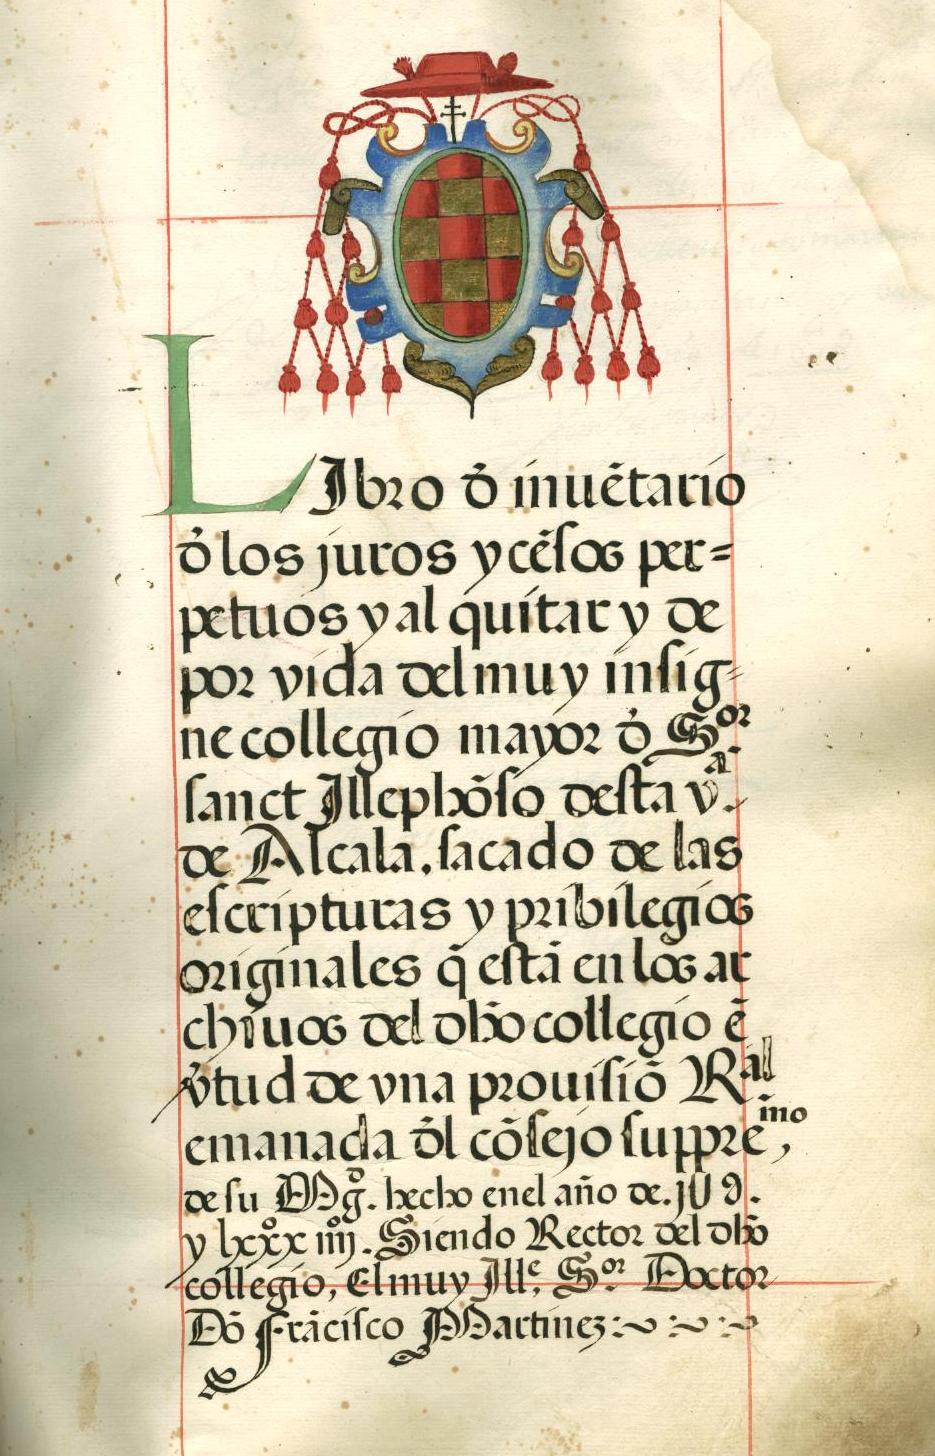 LIbro đ inuẽtario
đ los juros y cẽsos per=
petuos y al quitar y de
por vida del muy insig=
ne collegio mayor đ Sor
sanct Illephõso desta va.
de Alcala. sacado de las
escripturas y pribilegios
originales q̃ estã en los ar
chiuos del dho collegio ẽ
v̉tud de vna prouisiõ Ral
emanada đl cõsejo suppremo,
de su Mgo. hecho enel año de.
y lxxxo iiijo. Siendo Rector del dho
collegio, El muy Ille, Sor Doctor
Dõ Frãcisco Martinez